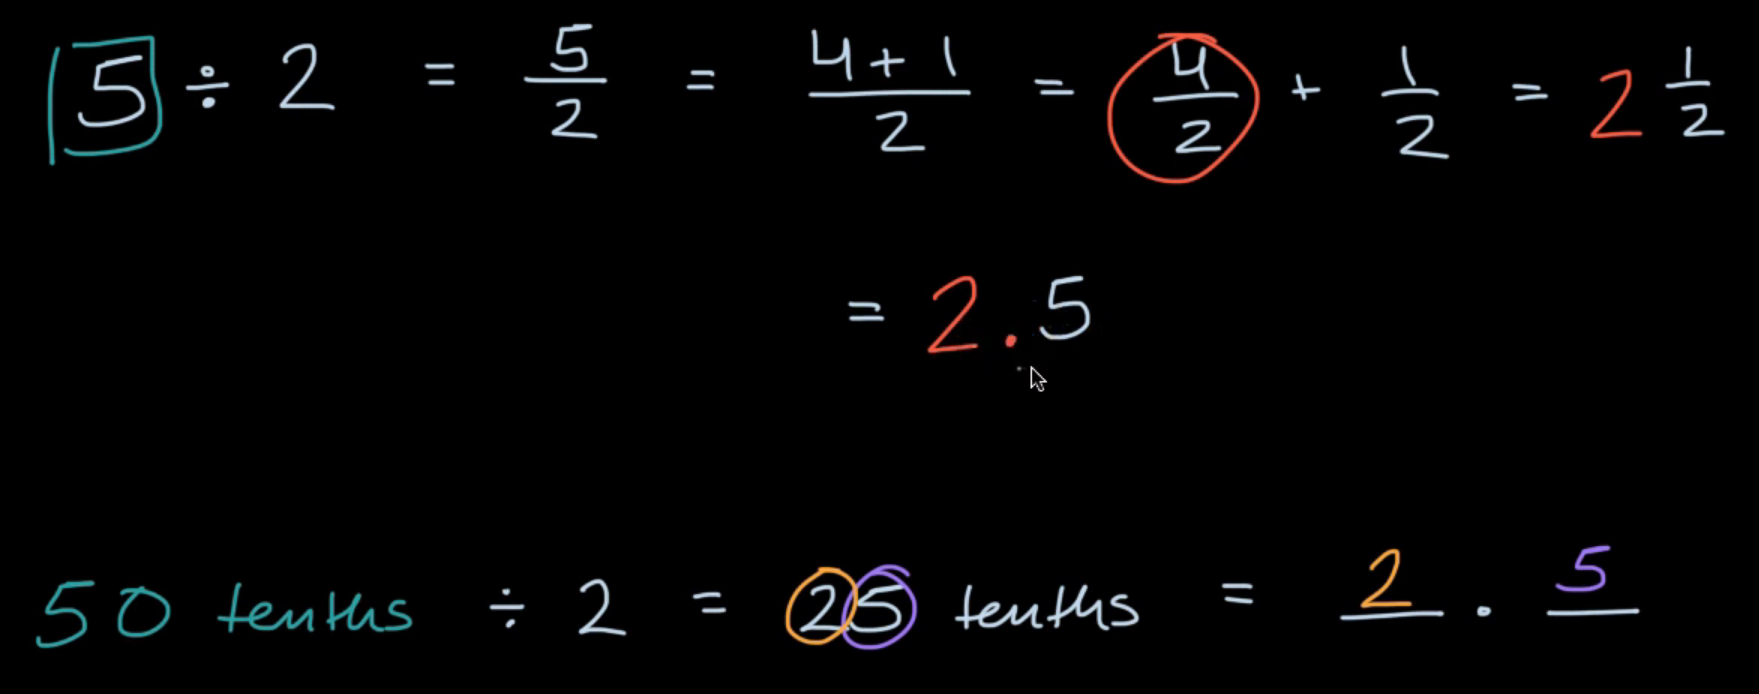 5 ÷ 2 = 5/2 = (4+1)/2 = 4/2 + 1/2 = 2 1/2
= 2.5
50 tenths ÷ 2 = 25 tenths = 2 . 5